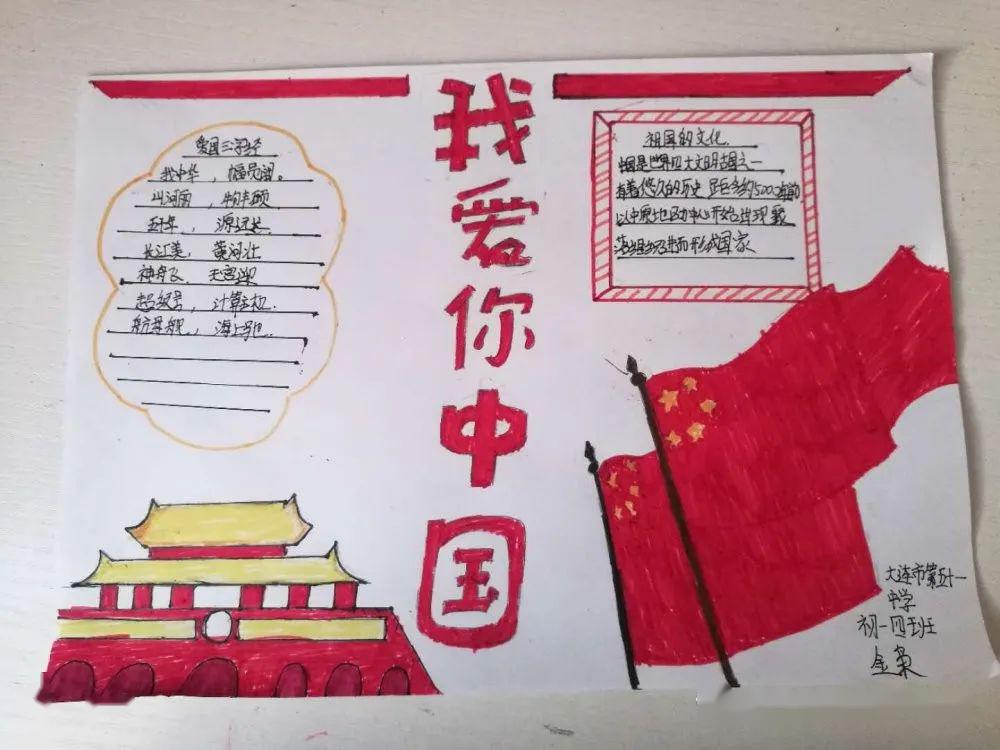 我爱你中国
爱国三字经
我中华，幅员阔。
山河丽，物丰硕
五千年，源远长
长江美，黄河壮
神舟飞，天宫
超级号，计算机
航母舰，海上
祖国的文化
中国是世界四大文明古国之一
有着悠久的历史 距今约5000年前
以中原地区为中心开始出现聚
落组织进而形成国家
大连市第五十一
中学
初一四班
金